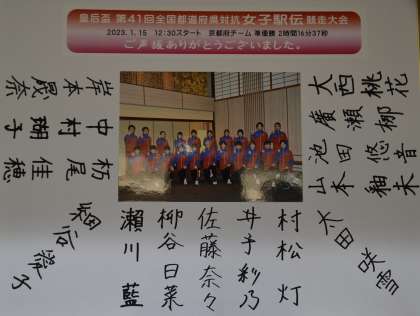 皇后盃 第41回全国都道府県対抗女子駅伝競走大会
2023.1.15 12:30スタート 京都府チーム 準優勝 2時間16分37秒
ご声援ありがとうございました。
大西桃花
廣瀬梛
池田悠音
山本釉未
太田咲雪
村松灯
井手彩乃
佐藤奈々
柳谷日菜
瀨川藍
細谷愛子
朽尾佳穂
中村瑚子
岸本晟奈